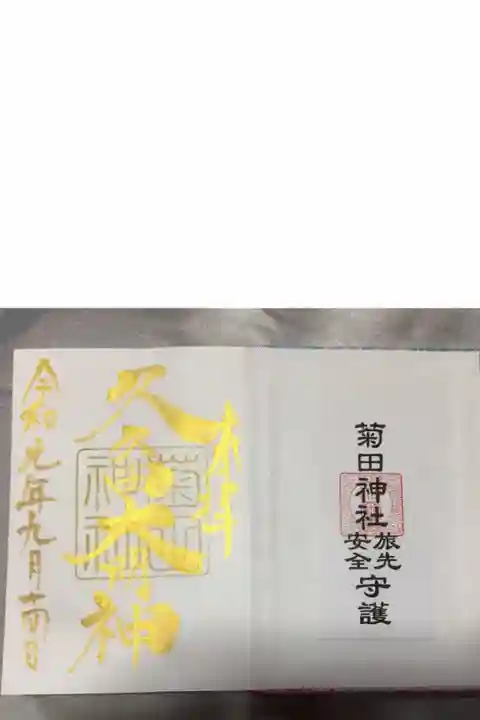 菊田神社
旅先
安全
守護
奉拝
久々田大明神
菊田
神社
令和元年九月十四日